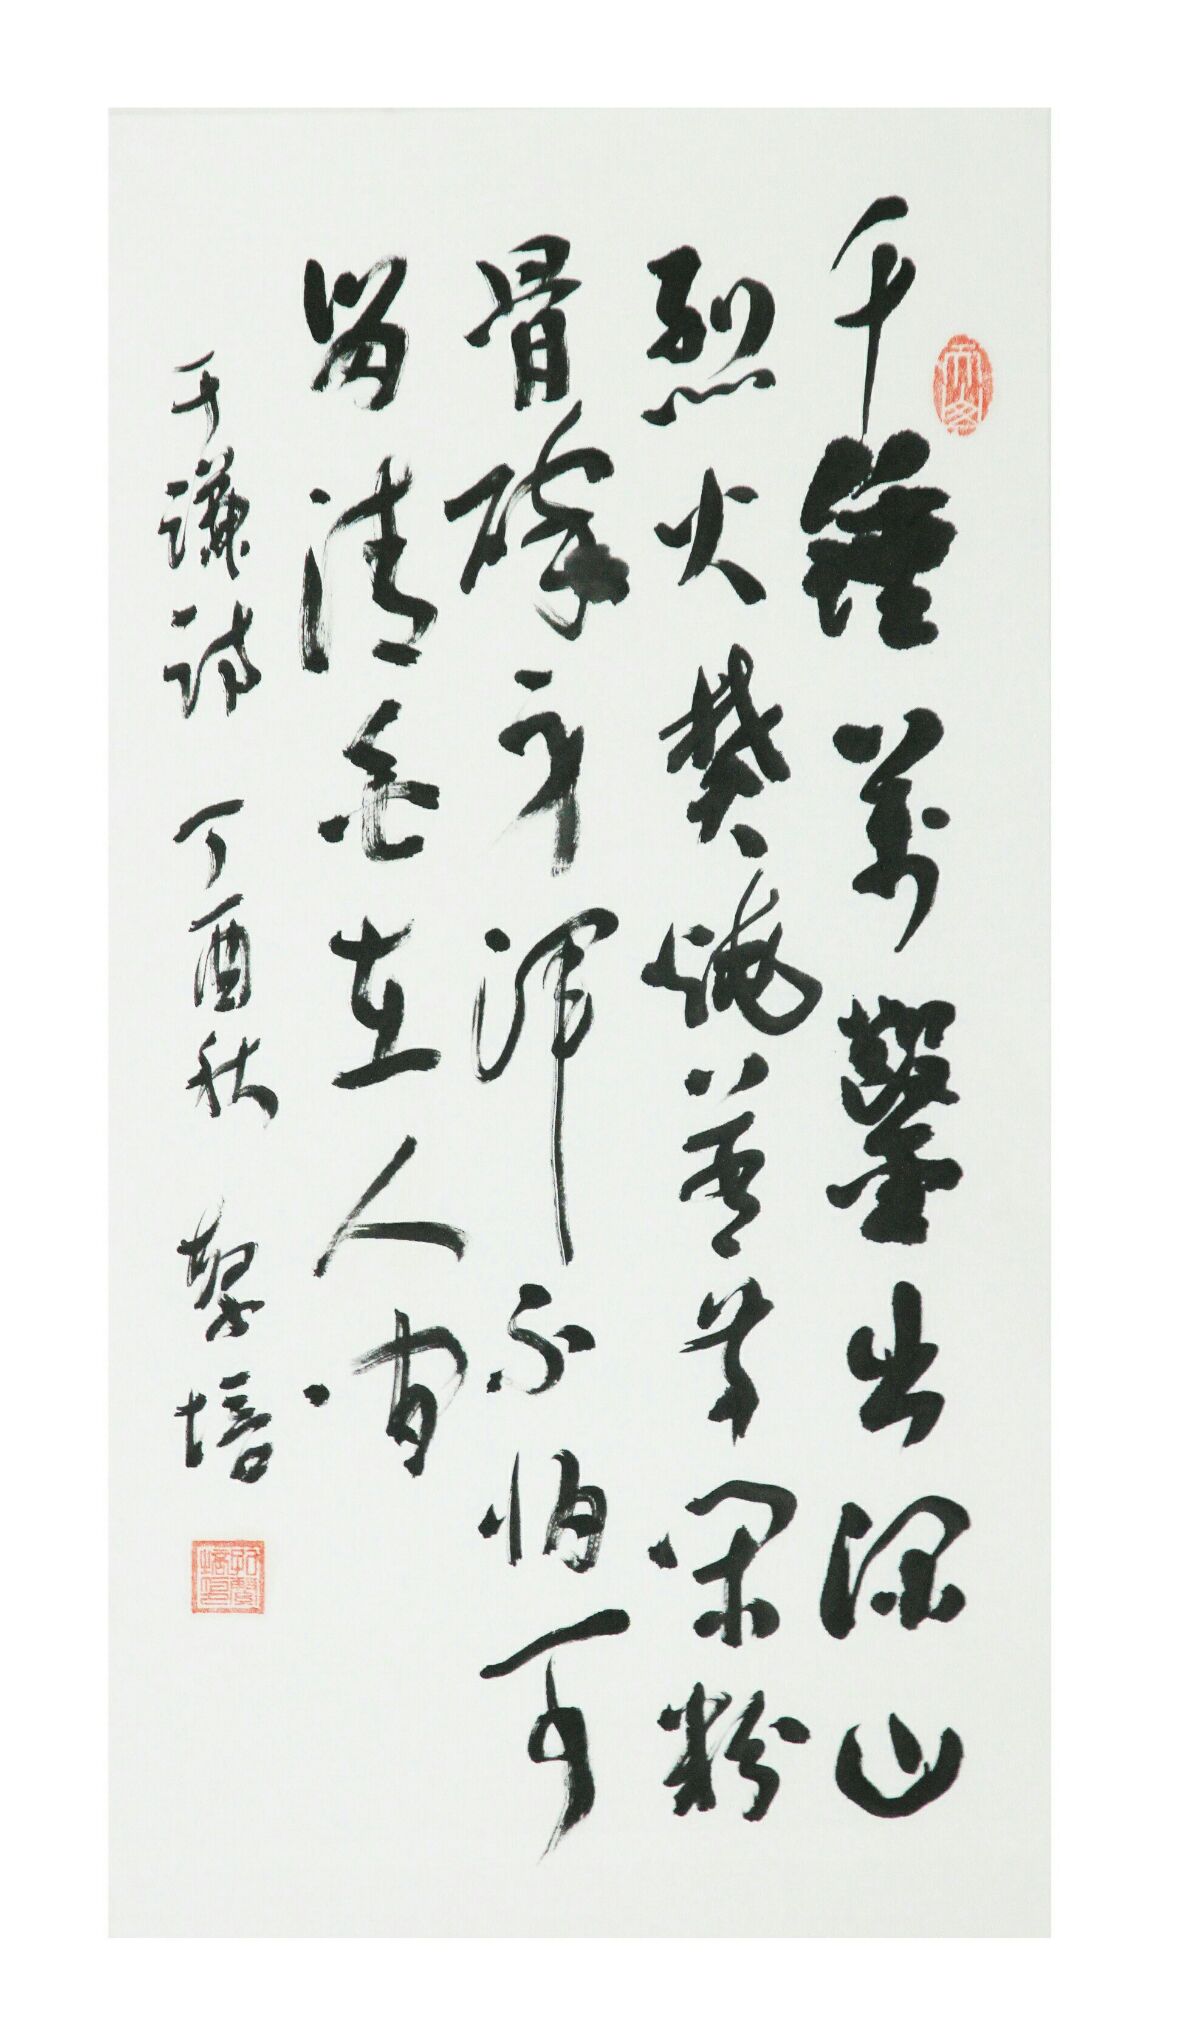 千錘萬鑿出深山
烈火焚燒若等閑粉
骨碎身渾不怕要
留清白在人間
于謙詩 丁酉秋 培